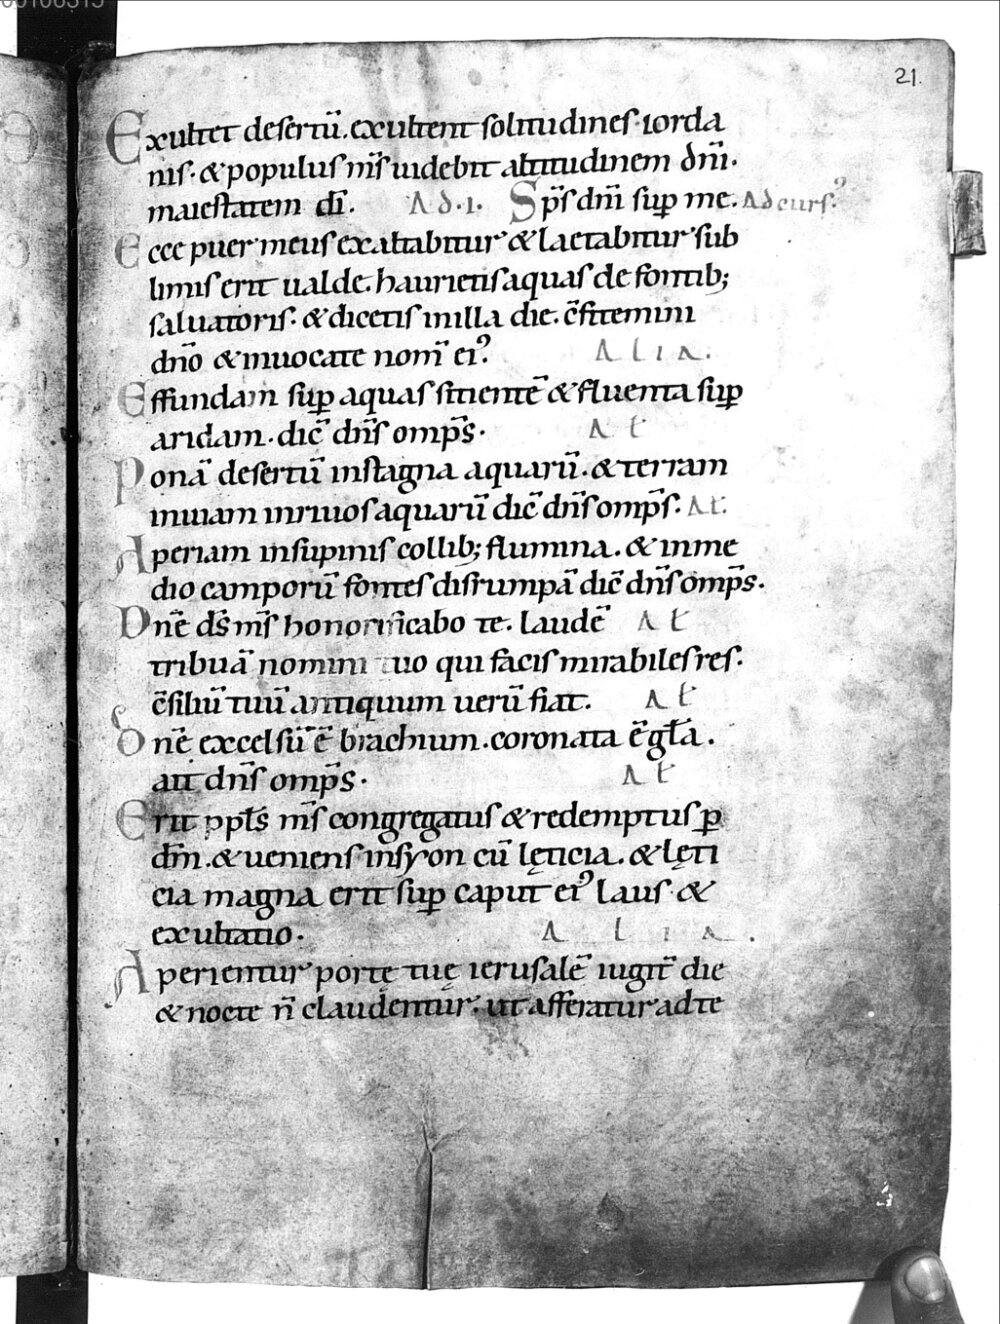 00106315
21.
Exultet desertū. exultent solitudines iorda
nis. & populus m̄s uidebit altitudinem dn̄i.
maiestatem dī. Ad.i. Sp̄s dn̄i sup̲ me. Ad curs.ꝰ
Ecce puer meus exaltabitur & laetabitur sub
limis erit ualde. haurietis aquas de fontib;
saluatoris. & dicetis inilla die. c̄fitemini
dn̄o & inuocate nom̄ eiꝰ. Alia.
Effundam sup̲ aquas sitientē & fluenta sup̲
aridam. dic̄ dn̄s omp̄s. At
Ponā desertū instagna aquarū. & terram
inuiam inriuos aquarū dic̄ dn̄s omp̄s. At.
Aperiam insupinis collib; flumina. & inme
dio camporū fontes disrumpā dic̄ dn̄s omp̄s.
Dn̄e ds̄ m̄s honorificabo te. laudē At
tribuā nomini tuo qui facis mirabiles res.
c̄siliū tuū antiquum uerū fiat. At
Dn̄e excelsū ē brachium. coronata ē gl̄a.
ait dn̄s omp̄s. At
Erit ppl̄s m̄s congregatus & redemptus p̲
dn̄m. & ueniens insyon cū lęticia. & lęti
cia magna erit sup̲ caput eiꝰ laus &
exultatio. Alia.
Aperientur portę tuę ierusalē iugit̄ die
& nocte n̄ claudentur. ut afferatur adte